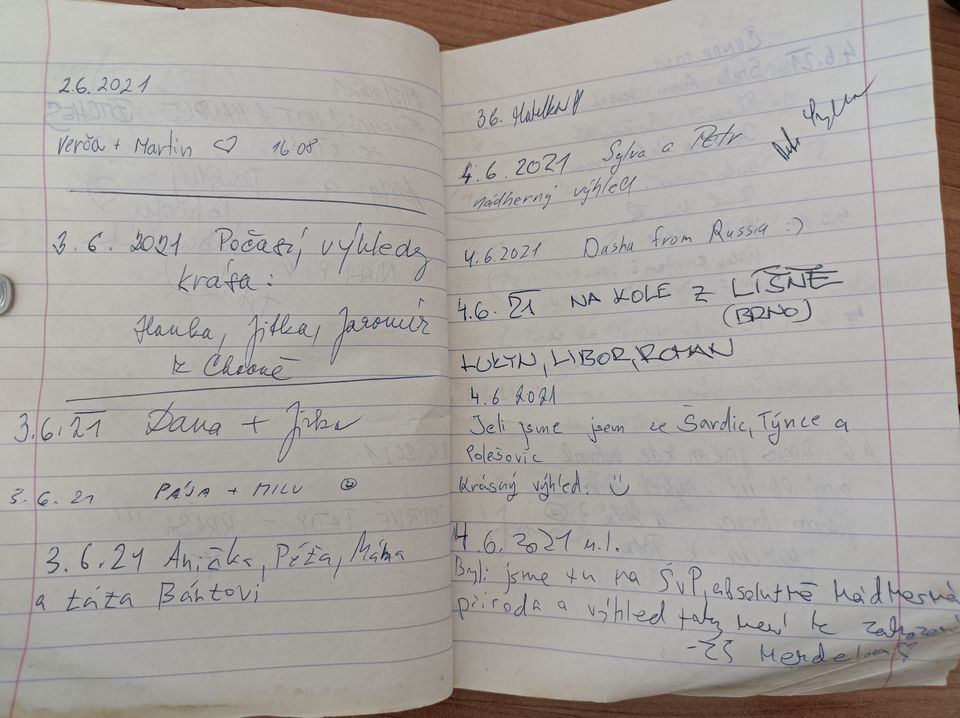 2.6.2021
Verča + Martin ♡ 16:08
3.6.2021 Počasí, výhledy
krása:
Hanka, Jitka, Jaromír
z
3.6.21 Dana + Jirka
3.6.21 PÁJA + MILU ☺
3.6.21 Anička, Péťa, Máma
a táta Bártovi
3.6.
4.6.2021 Sylva a Petr
nádherný výhled.
4.6.2021 Dasha from Russia :)
4.6.21 NA KOLE Z LÍŠNĚ
(BRNO)
LIBOR, ROMAN
4.6.2021
Jeli jsme jsem ze Šardic, Týnce a
Polešovic
Krásný výhled.
4.6.2021 n.l.
Byli jsme tu na ŠvP, absolutně nádherná
příroda a výhled taky není k zahození
- ZŠ